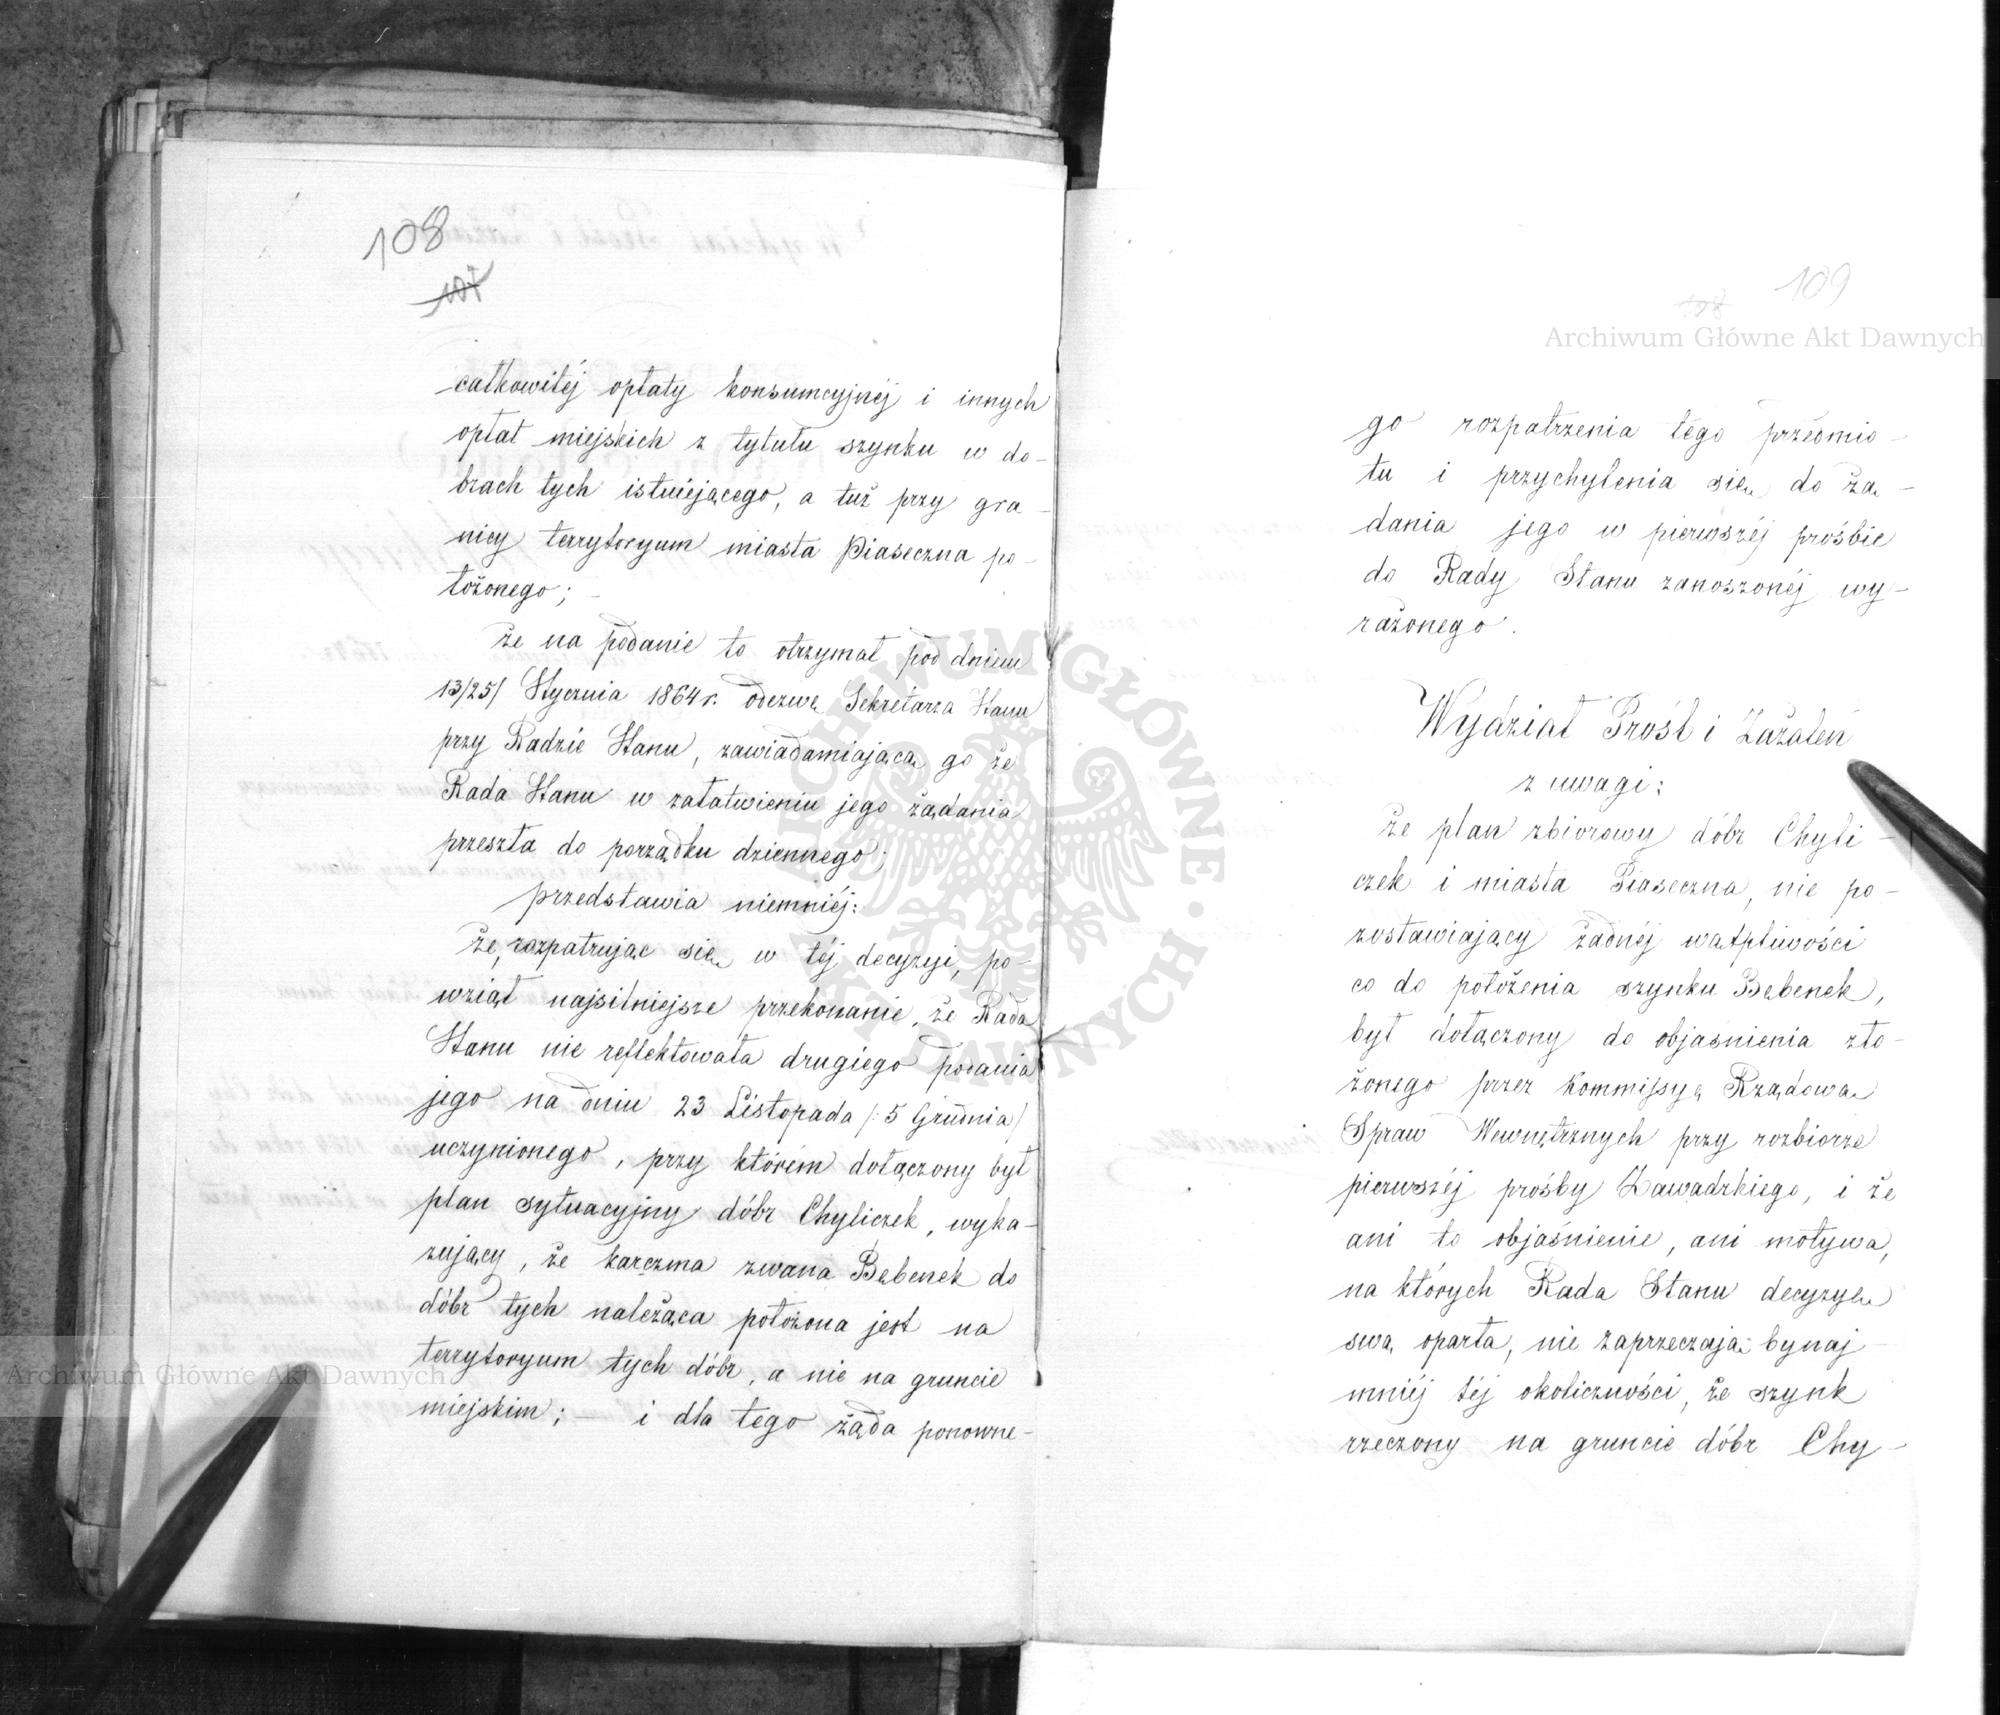 108
107
całkowitéj opłaty konsumcyjnéj i innych
opłat miejskich z tytułu szynku w do-
brach tych istniejącego, a tuż przy gra-
nicy terrytoryum miasta Piaseczna po-
łożonego; -
że na podanie to otrzymał pod dniem
13/25/ Stycznia 1864 r. odezwę Sekretarza Stanu
przy Radzie Stanu, zawiadamiającą go że
Rada Stanu w załatwieniu jego żądania
przeszła do porządku dziennego;
przedstawia niemniéj:
że, rozpatrując się w téj decyzyi, po-
wziął najsilniejsze przekonanie, że Rada
Stanu nie reflektowała drugiego podania
jego na dniu 23 Listopada /: 5 Grudnia/
uczynionego, przy którém dołączony był
plan sytuacyjny dóbr Chyliczek, wyka-
zujący, że karczma zwana Bębenek do
dóbr tych należąca położona jest na
terrytoryum tych dóbr, a nie na gruncie
miejskim; - i dla tego żąda ponowne-
109
108
Archiwum Główne Akt Dawnych
go rozpatrzenia tego przedmio-
tu i przychylenia się do żą-
dania jego w pierwszéj prośbie
do Rady Stanu zanoszonéj wy-
rażonego.
Wydział Próśb i Zażaleń
z uwagi:
że plan zbiorowy dóbr Chyli-
czek i miasta Piaseczna, nie po-
zostawiający żadnéj wątpliwości
co do położenia szynku Bębenek,
był dołączony do objasnienia zło-
żonego przez Kommissyą Rządową
Spraw Wewnętrznych przy rozbiorze
pierwszéj prośby Zawadzkiego, i że
ani to objaśnienie, ani motywa,
na których Rada Stanu decyzyę
swą oparła, nie zaprzeczają bynaj-
mniéj téj okoliczności, że szynk
rzeczony na gruncie dóbr Chy-
Archiwum Główne Akt Dawnych
ARCHIWUM GŁÓWNE AKT DAWNYCH